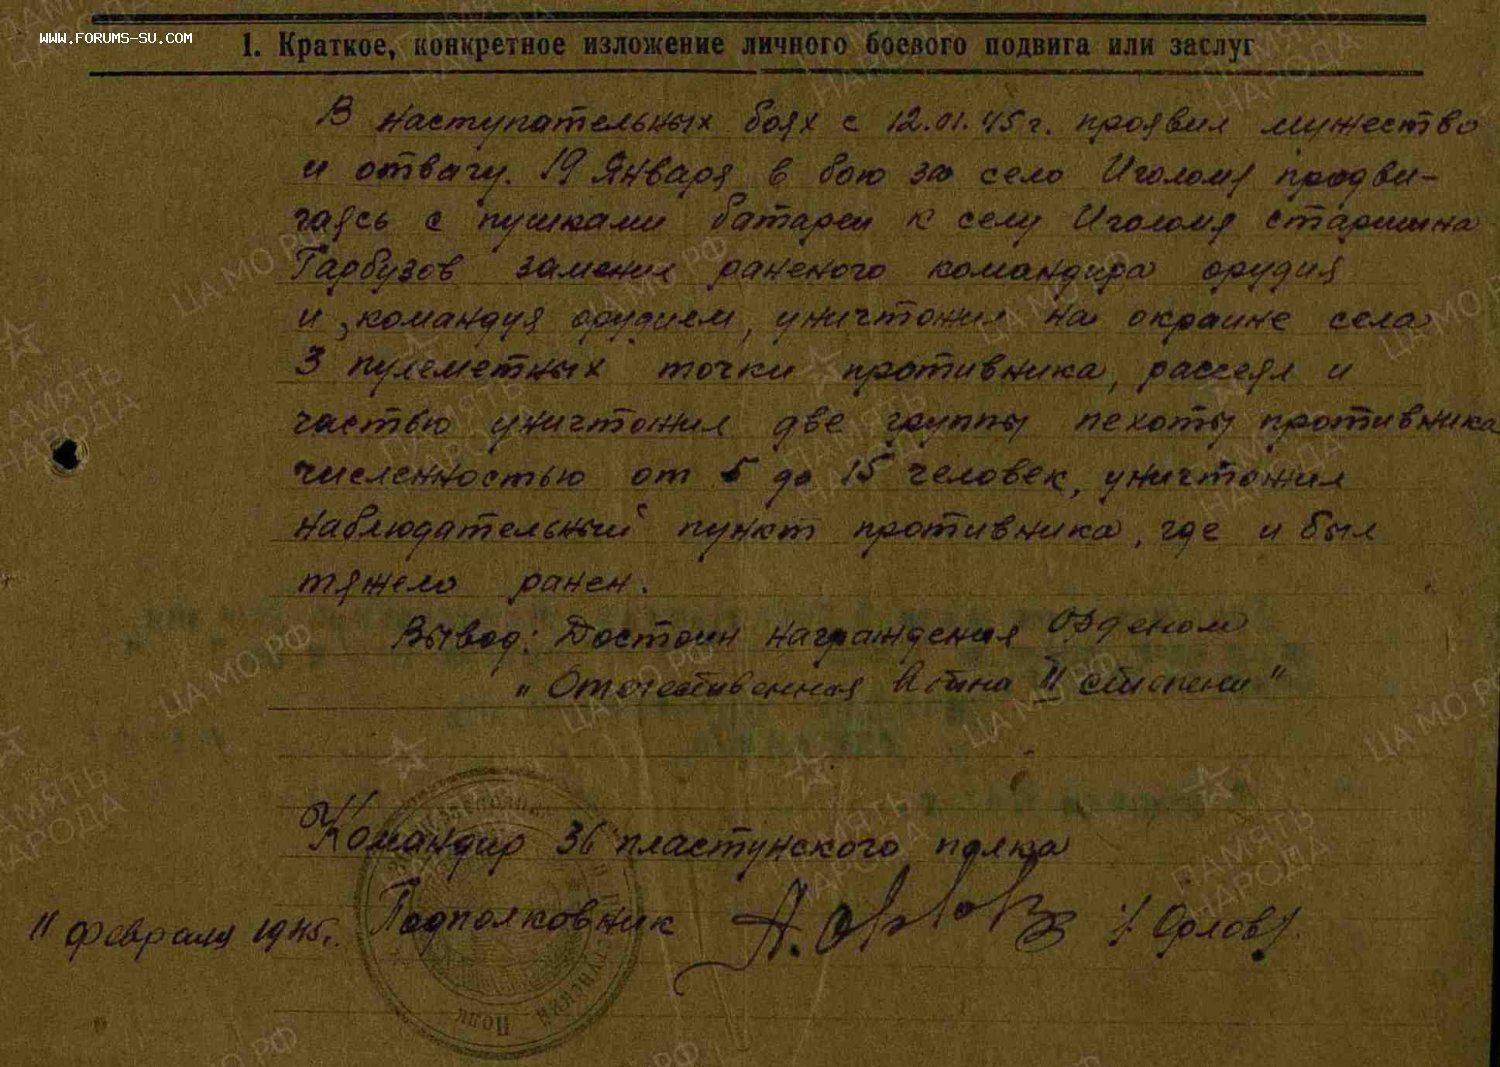 WWW.FORUMS-SU.COM
1. Краткое, конкретное изложение личного боевого подвига или заслуг
В наступательных боях с 12.01.45г. проявил мужество
и отвагу. 19 Января в бою за село Иголомя продви-
гаясь с пушками батареи к селу Иголомя старшина
Гарбузов заменил раненого командира орудия
и, командуя орудием, уничтожил на окраине села
3 пулеметных точки противника, рассеял и
частью уничтожил две группы пехоты противника
численностью от 5 до 15 человек, уничтожил
наблюдательный пункт противника, где и был
тяжело ранен.
Вывод: Достоин награждения Орденом
"Отечественная Война II степени"
Командир 36 пластунского полка
11 февраля 1945г. Подполковник А. Орлов /Орлов/.
ЦА МО РФ
ПАМЯТЬ
НАРОДА